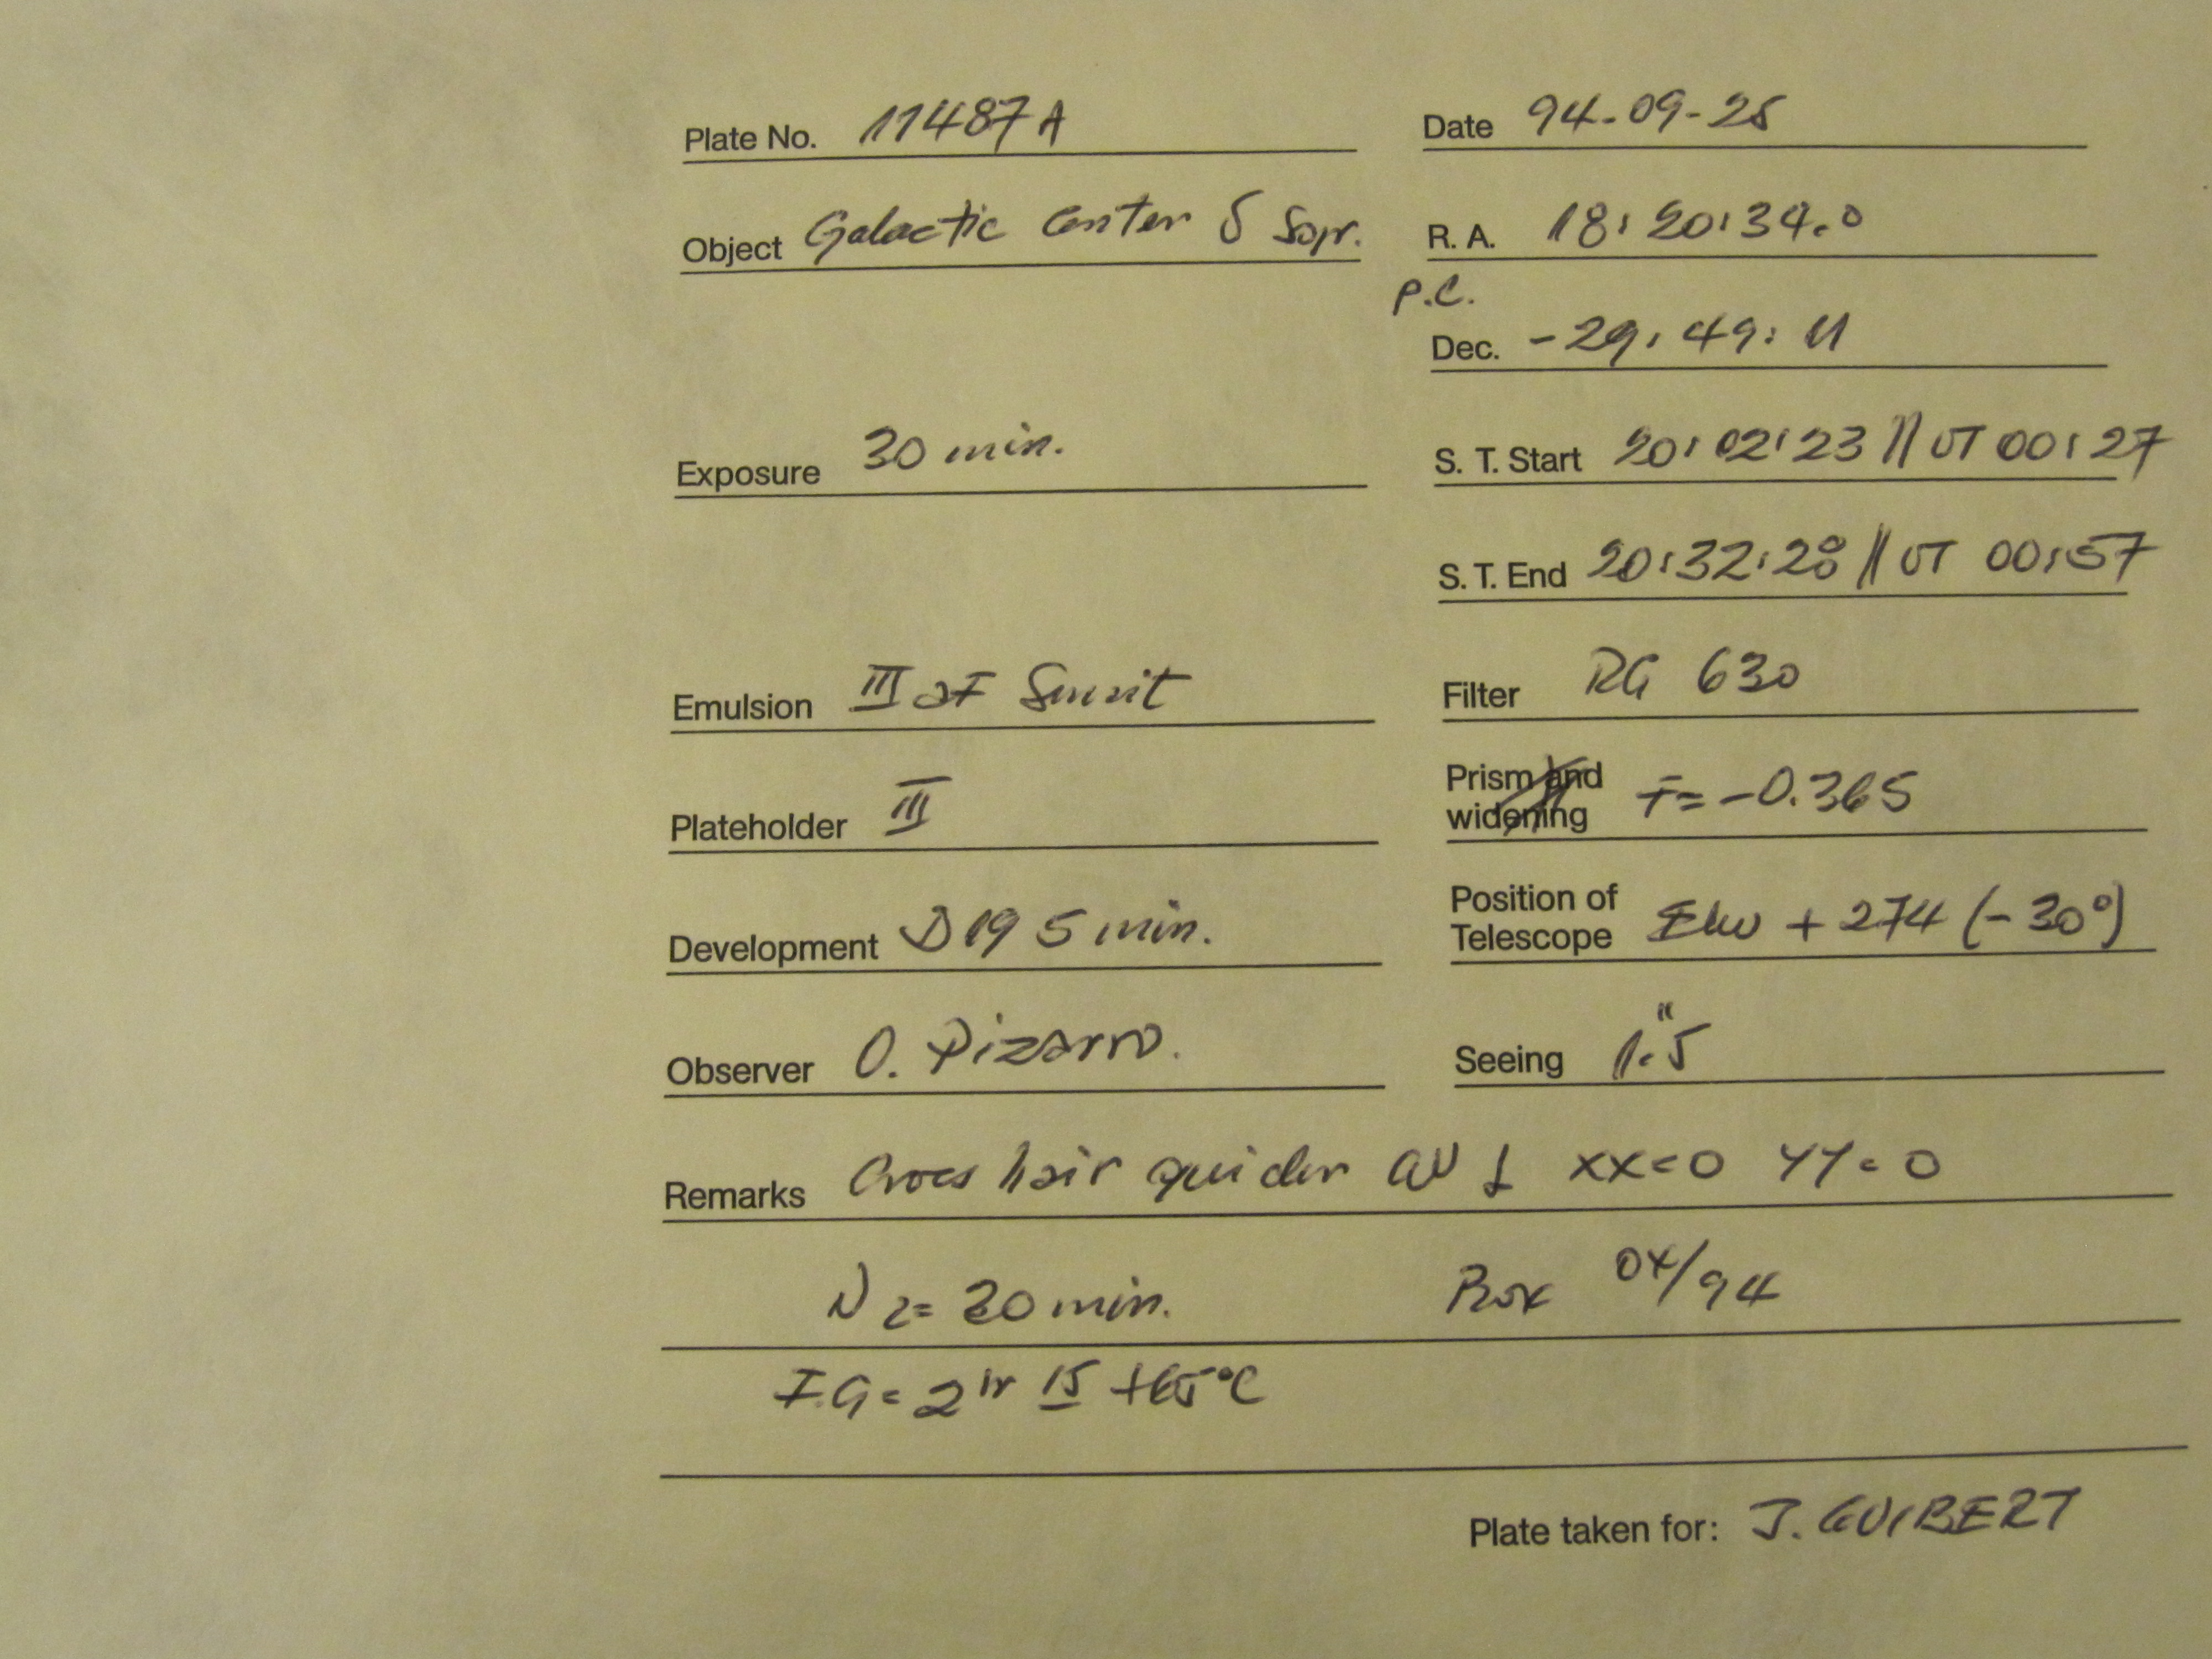 Plate No. 11487A Date 94-09-25
Object Galactic Center δ R. A. 18:20:34.0
P.C.
Dec. -29:49:11
Exposure 30 min. S. T. Start 20:02:23 // UT 00:27
S. T. End 20:32:28 // UT 00:57
Emulsion III aF Filter RG 630
Prism and
widening F=-0.365
Plateholder III
Position of
Telescope + 274 (-30°)
Development D19 5 min.
Observer O. Pizarro. Seeing 1."5
Remarks Cross hair guider XX=0 YY=0
N2= 20 min. Box 04/94
F.G= 2hr 15 +65°C
Plate taken for: J. GUIBERT